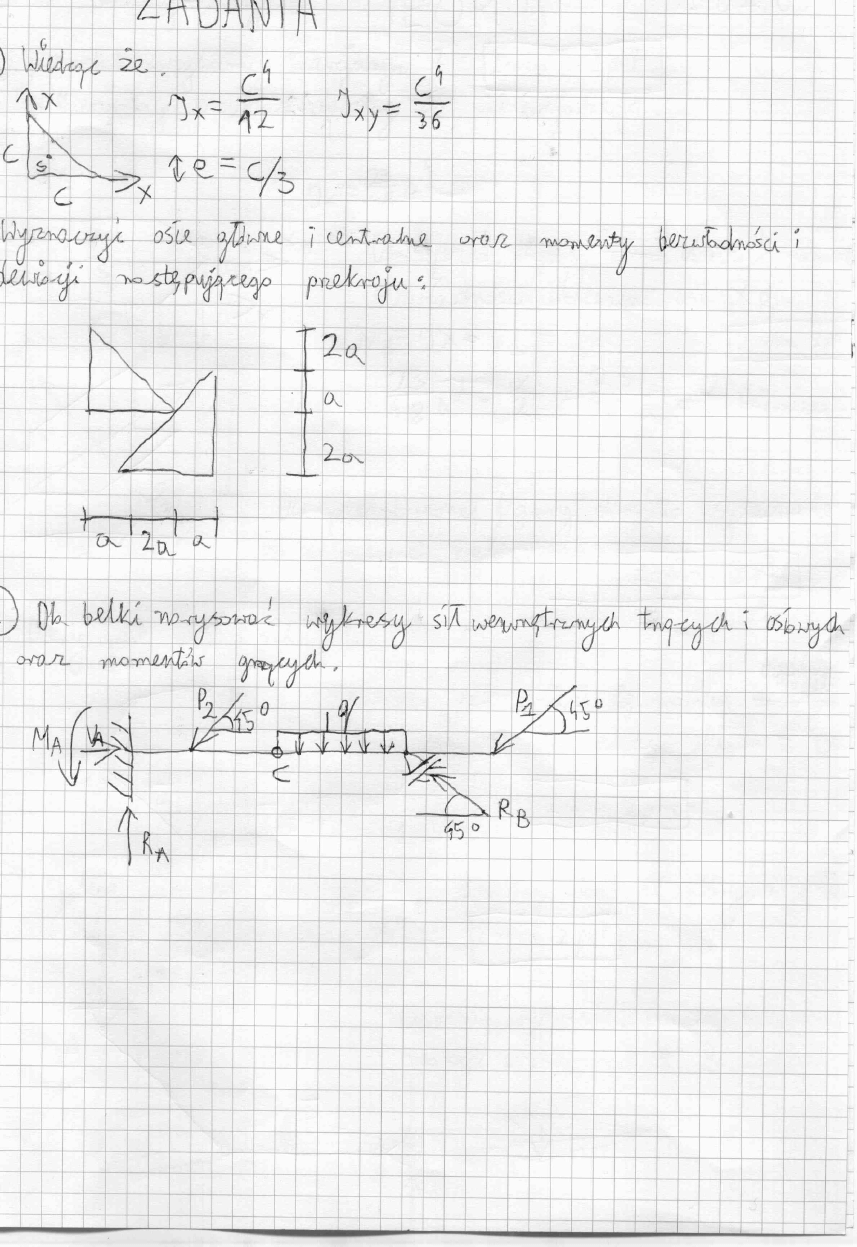 ZADANIA
) Wiedząc że.
x
Jx = C⁴/12
Jxy = C⁴/36
C
S
C
x
↕ e = C/3
Wyznaczyć osie główne i centralne oraz momenty bezwładności i
dewiacji następującego przekroju:
2a
a
2a
a 2a a
) Dla belki narysować wykresy sił wewnętrznych tnących i osiowych
oraz momentów gnących.
P2 45° q P1 45°
MA VA
C
RB
45°
RA